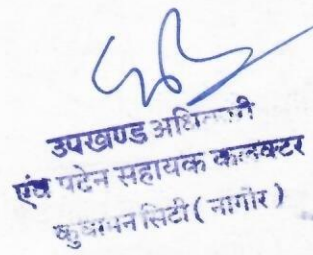 उपखण्ड अधिकारी
एंव पदेन सहायक कलक्टर
कुचामन सिटी ( नागोर )